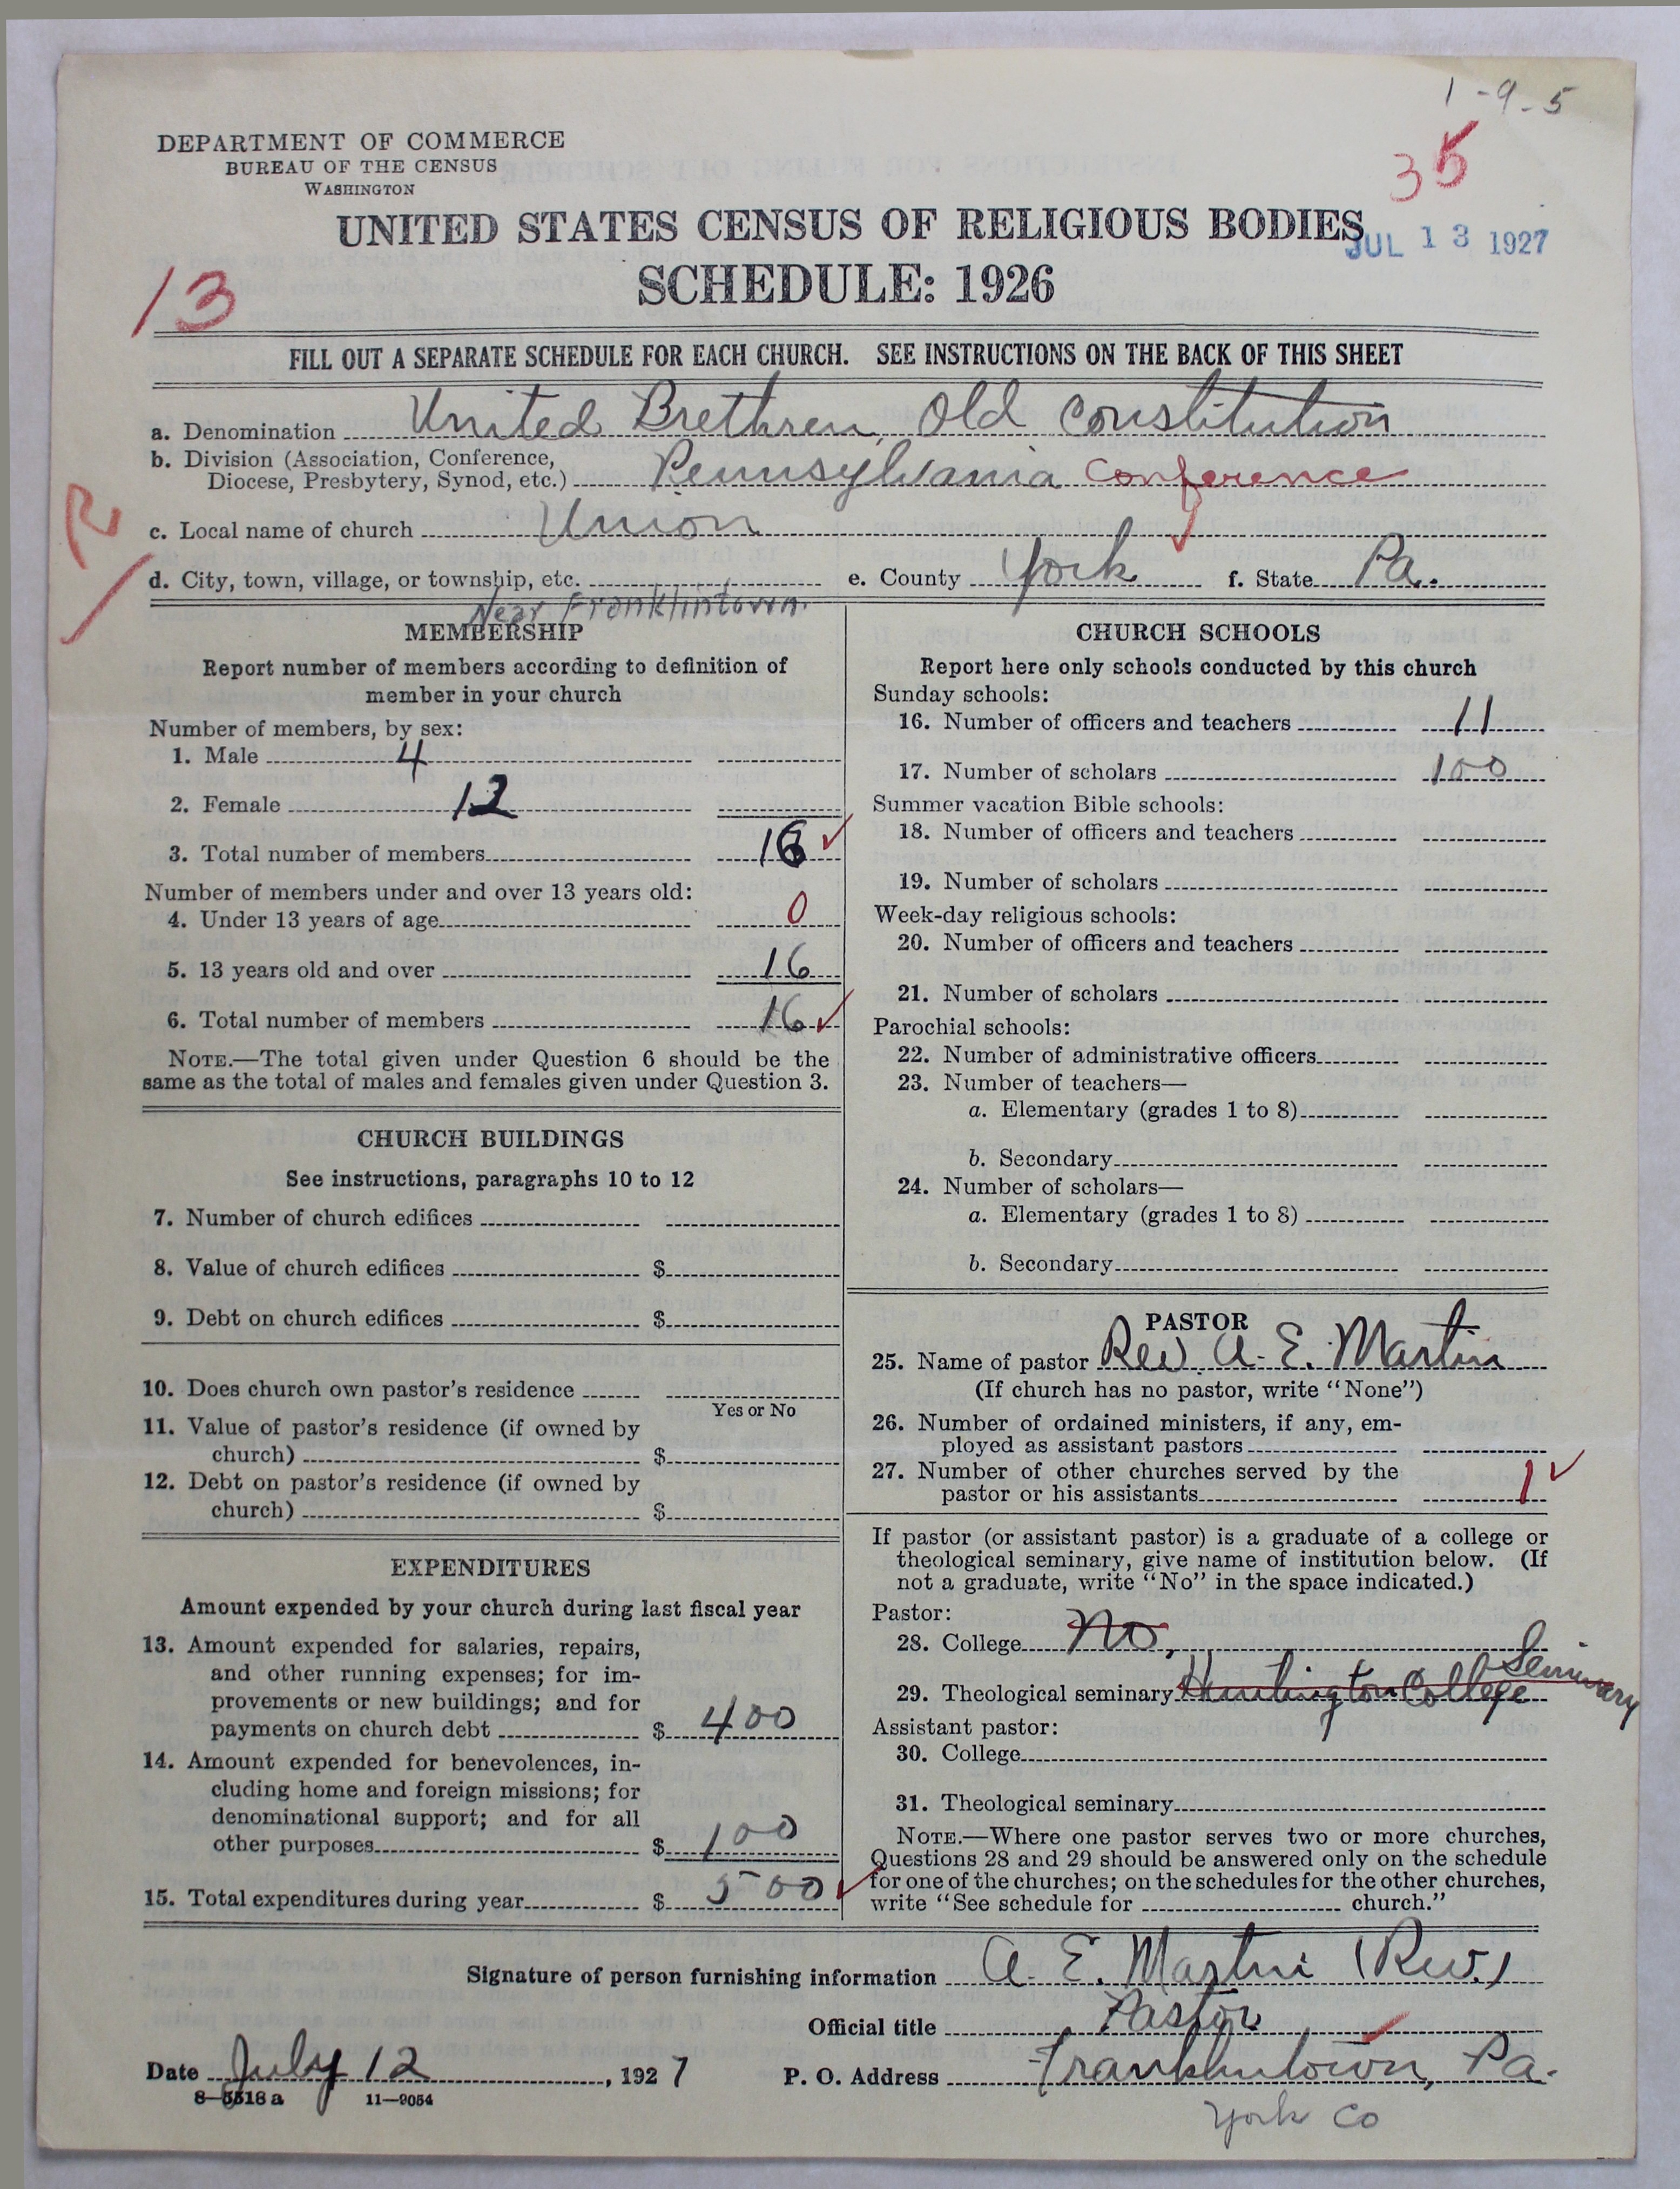 1-9-5
35
DEPARTMENT OF COMMERCE
BUREAU OF THE CENSUS
WASHINGTON
UNITED STATES CENSUS OF RELIGIOUS BODIES
JUL 13 1927
SCHEDULE: 1926
13
FILL OUT A SEPARATE SCHEDULE FOR EACH CHURCH. SEE INSTRUCTIONS ON THE BACK OF THIS SHEET
a. Denomination United Brethren, Old Constitution
b. Division (Association, Conference,
Diocese, Presbytery, Synod, etc.) Pennsylvania Conference
R
c. Local name of church Union
d. City, town, village, or township, etc. e. County York f. State Pa.
Near Franklintown.
MEMBERSHIP
Report number of members according to definition of
member in your church
Number of members, by sex:
1. Male 4
2. Female 12
3. Total number of members 16
Number of members under and over 13 years old:
4. Under 13 years of age 0
5. 13 years old and over 16
6. Total number of members 16
NOTE.—The total given under Question 6 should be the
same as the total of males and females given under Question 3.
CHURCH BUILDINGS
See instructions, paragraphs 10 to 12
7. Number of church edifices
8. Value of church edifices $
9. Debt on church edifices $
10. Does church own pastor's residence
Yes or No
11. Value of pastor's residence (if owned by
church) $
12. Debt on pastor's residence (if owned by
church) $
EXPENDITURES
Amount expended by your church during last fiscal year
13. Amount expended for salaries, repairs,
and other running expenses; for im-
provements or new buildings; and for
payments on church debt $ 400
14. Amount expended for benevolences, in-
cluding home and foreign missions; for
denominational support; and for all
other purposes $ 100
15. Total expenditures during year $ 500
CHURCH SCHOOLS
Report here only schools conducted by this church
Sunday schools:
16. Number of officers and teachers 11
17. Number of scholars 100
Summer vacation Bible schools:
18. Number of officers and teachers
19. Number of scholars
Week-day religious schools:
20. Number of officers and teachers
21. Number of scholars
Parochial schools:
22. Number of administrative officers
23. Number of teachers—
a. Elementary (grades 1 to 8)
b. Secondary
24. Number of scholars—
a. Elementary (grades 1 to 8)
b. Secondary
PASTOR
25. Name of pastor Rev. A. E. Martin
(If church has no pastor, write "None")
26. Number of ordained ministers, if any, em-
ployed as assistant pastors
27. Number of other churches served by the
pastor or his assistants 1
If pastor (or assistant pastor) is a graduate of a college or
theological seminary, give name of institution below. (If
not a graduate, write "No" in the space indicated.)
Pastor:
28. College No,
Seminary
29. Theological seminary Huntington College
Assistant pastor:
30. College
31. Theological seminary
NOTE.—Where one pastor serves two or more churches,
Questions 28 and 29 should be answered only on the schedule
for one of the churches; on the schedules for the other churches,
write "See schedule for church."
Signature of person furnishing information A. E. Martin (Rev.)
Official title Pastor
Date July 12, 1927 P. O. Address Franklintown, Pa.
8-5518 a 11-9054
York Co